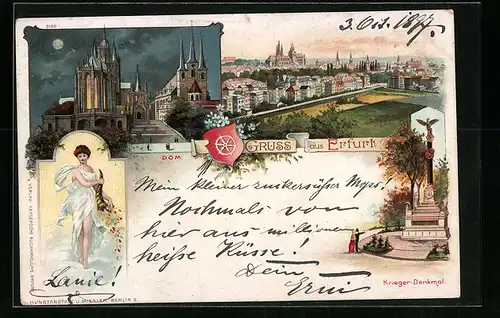 3. Oct. 1897.
DOM.
GRUSS aus Erfurt
Mein kleiner zuckersüßer Mops!
Nochmals von
hier aus millionen
heiße Küsse!
Dein
Erni
Lanie!
Krieger-Denkmal
KUNSTANSTALT J. MIESLER, BERLIN S.